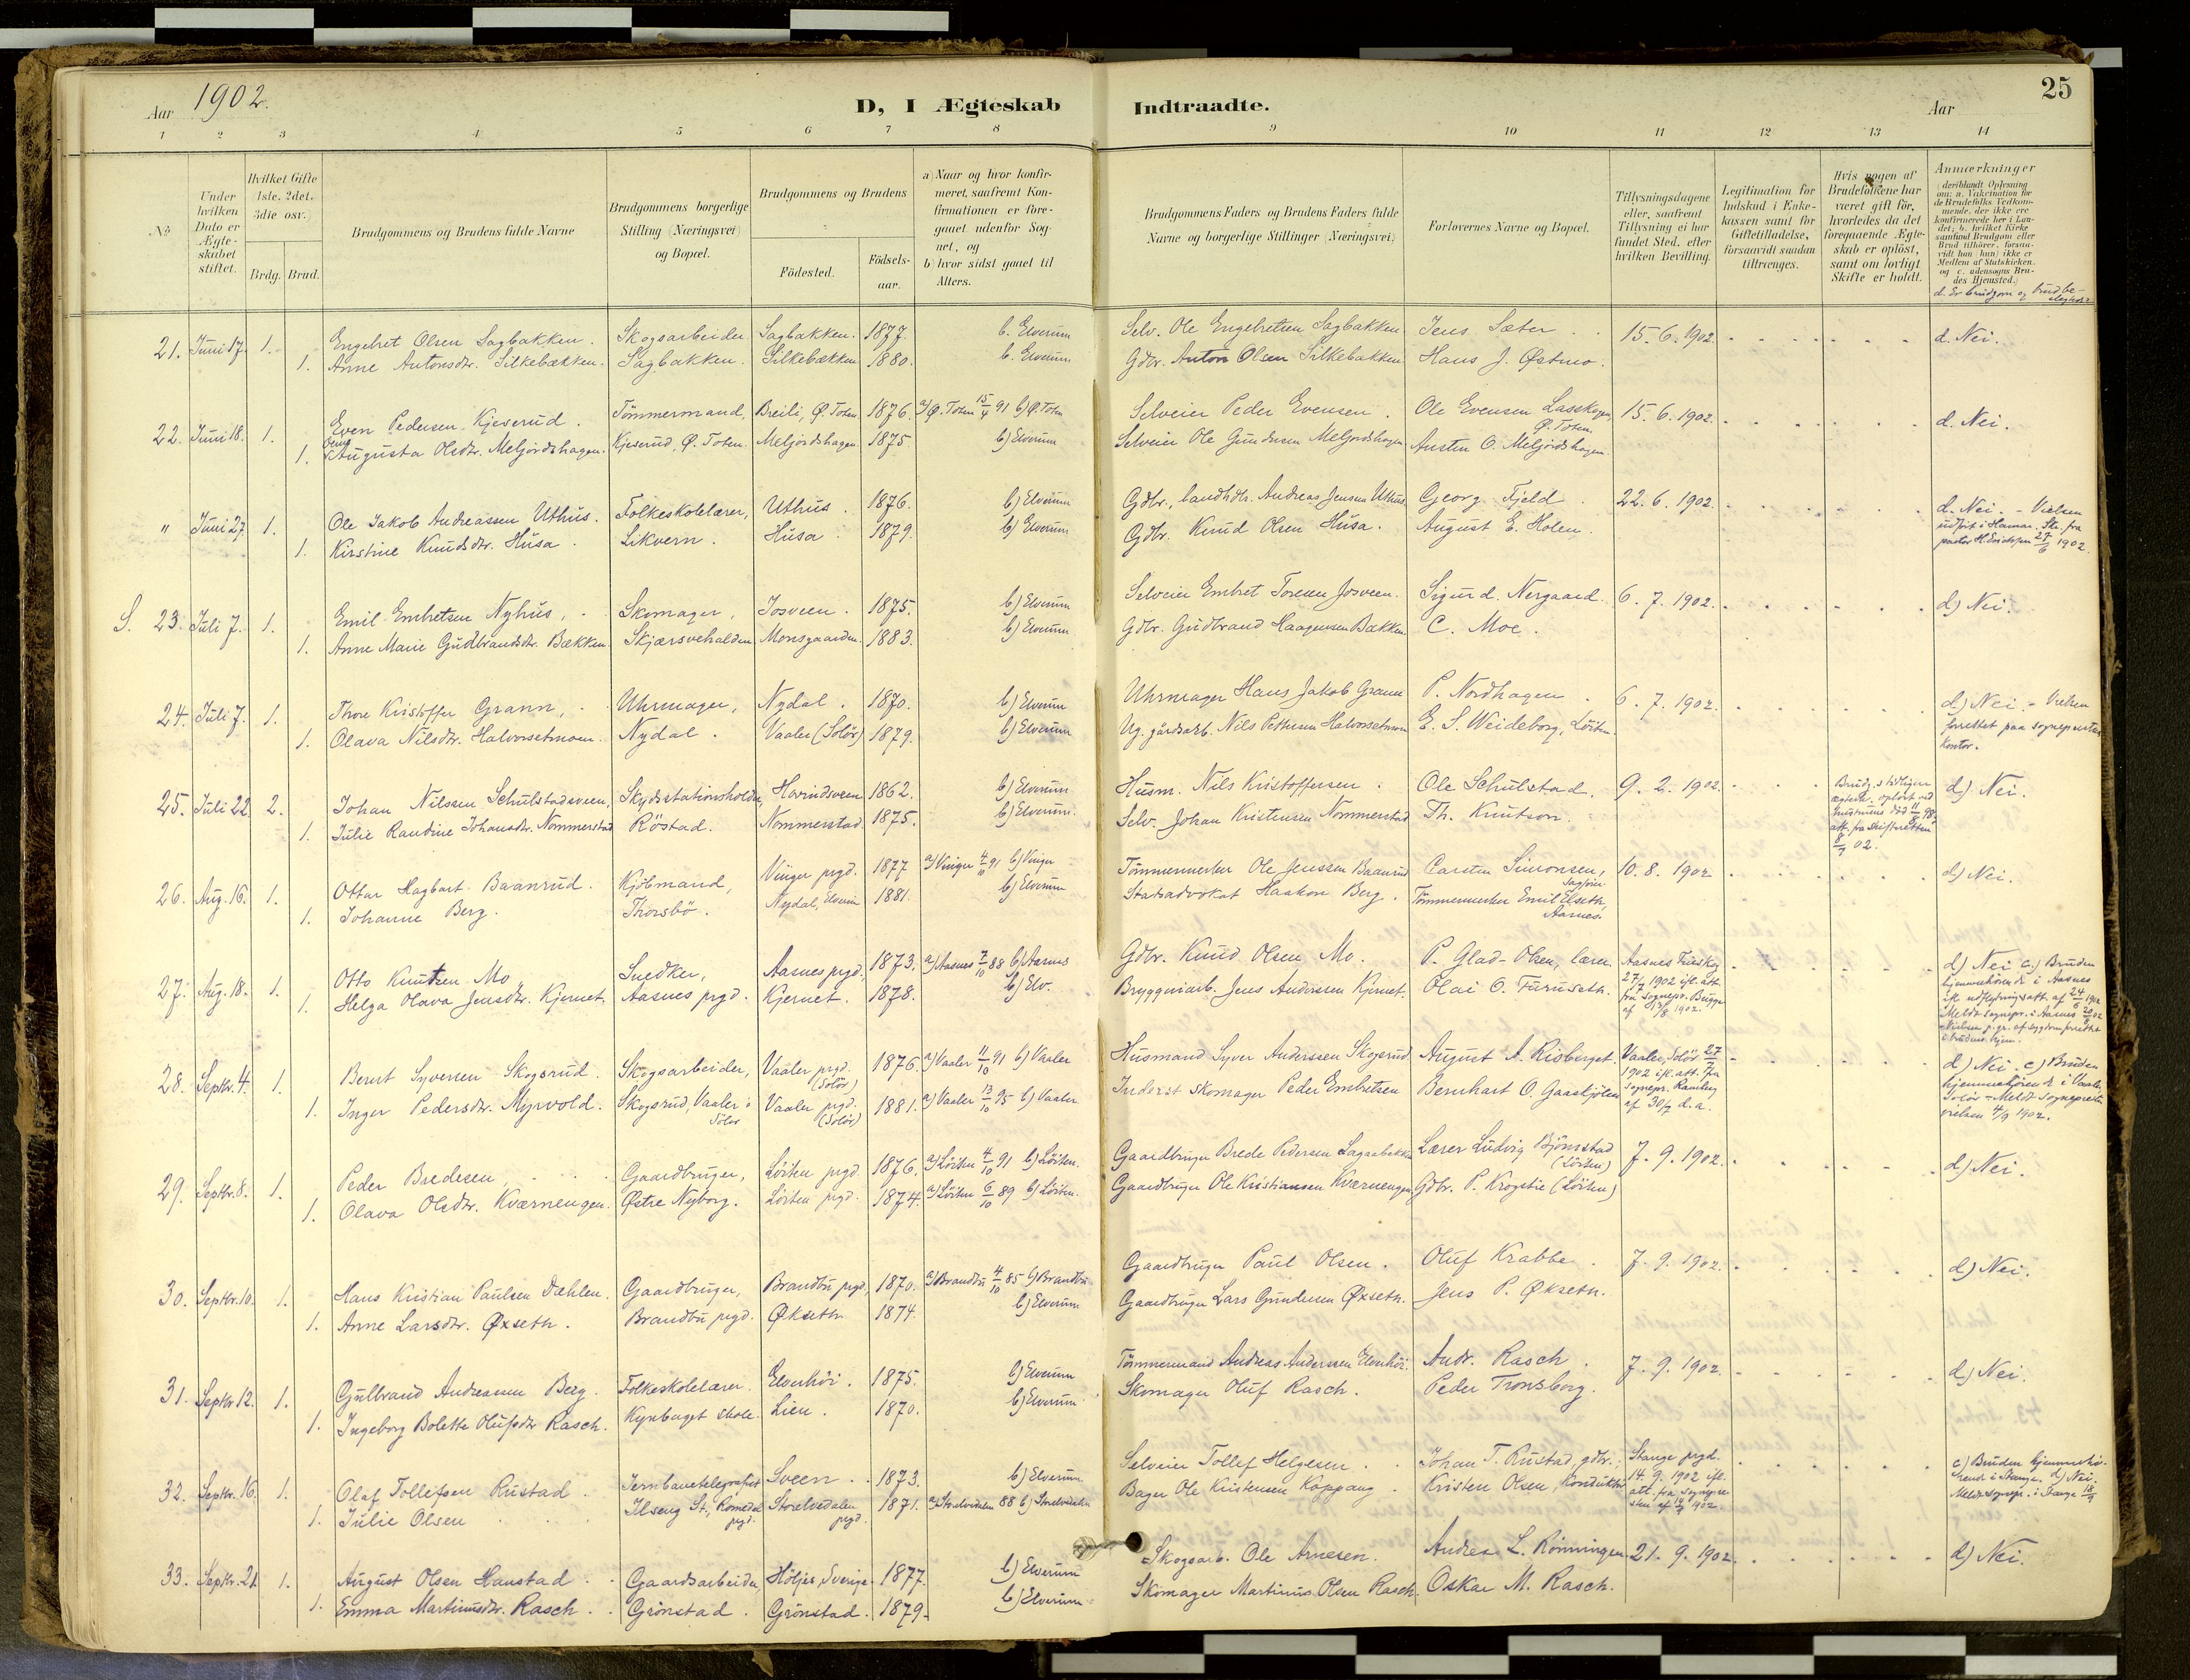 Aar 1902. D, I Ægteskab Indtraadte. Aar 25
1 2 3 4 5 6 7 8 9 10 11 12 13 14
No
Under hvilken Dato er Ægteskabet stiftet.
Hvilket Gifte (1ste, 2det, 3die osv.)
Brdg. Brud.
Brudgommens og Brudens fulde Navne
Brudgommens borgerlige Stilling (Næringsvei) og Bopæl.
Brudgommens og Brudens
Födested. Födselsaar.
a) Naar og hvor konfirmeret, saafremt Konfirmationen er foregaaet udenfor Sognet, og
b) hvor sidst gaaet til Alters.
Brudgommens Faders og Brudens Faders fulde Navne og borgerlige Stillinger (Næringsvei)
Forlovernes Navne og Bopæl.
Tillysningsdagene eller, saafremt Tillysning ei har fundet Sted, efter hvilken Bevilling.
Legitimation for Indskud i Enkekassen samt for Giftetilladelse, forsaavidt saadan tiltrænges.
Hvis nogen af Brudefolkene har været gift för, hvorledes da det foregaaende Ægteskab er oplöst, samt om lovligt Skifte er holdt.
Anmærkninger (deriblandt Oplysning om: a. Vakcination for de Brudefolks Vedkommende, der ikke ere konfirmerede her i Landet; b. hvilket Kirkesamfund Brudgom eller Brud tilhörer, forsaavidt han (hun) ikke er Medlem af Statskirken, og c. udensogns Brudes Hjemsted.)
d. Er brudgom og brud beslegtede?
21. Juni 17. 1. Engebret Olsen Sagbakken. Skogsarbeider Sagbakken. 1877. b. Elverum Selv. Ole Engebretsen Sagbakken Jens Sæter. 15.6.1902. d. Nei.
1. Anne Antonsdtr. Silkebækken. Sagbakken. Silkebækken 1880. b. Elverum Gdbr. Anton Olsen Silkebakken Hans J. Østmo.
22. Juni 18. 1. Even Pedersen Kjeserud. Tömmermand, Breili, Ø. Toten 1876. a) Ø. Toten 15/4 91 b) Ø. Toten Selveier Peder Evensen. Ole Evensen Lasskogen Ø. Toten. 15.6.1902. d. Nei.
1. Augusta Olsdtr. Meljordshagen. Kjeserud, Ø. Toten. Meljordshagen 1875 b) Elverum Selveier Ole Gundersen Meljordshagen Austen O. Meljordshagen
" Juni 27. 1. Ole Jakob Andreassen Uthus. Folkeskolelærer, Uthus. 1876. b) Elverum Gdbr., landhdlr. Andreas Jensen Uthus Georg Fjeld. 22.6.1902. d. Nei. - Vielsen udført i Hamar. Sk. fra pastor H. Erichsen 27/6 1902.
1. Kirstine Knudsdtr. Husa. Likvern. Husa. 1879. b) Elverum Gdbr. Knud Olsen Husa. August E. Holen.
S. 23. Juli 7. 1. Emil Embretsen Nyhus, Skomager, Josveen. 1875. b) Elverum Selveier Embret Toresen Josveen. Sigurd Nergaard. 6.7.1902. d) Nei.
1. Anne Marie Gudbrandsdtr. Bækken. Skjærsvehalden Monsgaarden. 1883. b) Elverum Gdbr. Gudbrand Haagensen Bækken. C. Moe.
24. Juli 7. 1. Thore Kristoffer Grann, Uhrmager, Nydal. 1870. b) Elverum Uhrmager Hans Jakob Grann P. Nordhagen. 6.7.1902. d) Nei. - Vielsen forrettet paa sogneprestens kontor.
1. Olava Nilsdtr. Halvorsetmoen. Nydal. Vaaler (Solör) 1879. b) Elverum Ug. gårdsarb. Nils Pettersen Halvorsetmoen E. S. Weideborg, Löiten.
25. Juli 22. 2. Johan Nilssen Schulstadsveen, Skydsstationsholder, Hovindsveen 1862. b) Elverum Husm. Nils Kristoffersen. Ole Schulstad. 9.2.1902. Brudg.s tidligere ægtesk. oplöst ved hustruens död 11/8 98. att. fra skifteretten 8/7 02. d) Nei.
1. Julie Randine Johansdtr. Nommerstad Röstad. Nommerstad 1875. b) Elverum. Selv. Johan Kristensen Nommerstad Th. Knutson.
26. Aug. 16. 1. Ottar Hagbart Baanrud. Kjöbmand, Vinger prgd. 1877 a) Vinger 4/10 91 b) Vinger Tömmermerker Ole Jenssen Baanrud Carsten Simonsen, Sagfører 10.8.1902 d) Nei.
1. Johanne Berg. Thorsbö. Nydal, Elverum 1881. b) Elverum Stadsadvokat Haakon Berg. Tömmermerker Emil Elseth, Aarnes.
27. Aug. 18. 1. Otto Knutsen Mo Snedker, Aasnes prgd. 1873. a) Aasnes 7/10 88 b) Aasnes Gdbr. Knud Olsen Mo. P. Glad-Olsen, lærer Aasnes Finskog 27/7 1902 ifl. att. fra sognepr. Bugge af 13/8 1902. d) Nei c) Bruden hjemmehörende i Aasnes ifl. udflytningsatt. af 24/6 1902 Meldt sognepr. i Aasnes 20/8 02 Vielsen p. gr. af sygdom forrettet i brudens hjem.
1. Helga Olava Jensdtr. Kjernet. Aasnes prgd. Kjernet. 1878. b) Elv. Bryggeriarb. Jens Anderssen Kjernet. Olai O. Furuseth.
28. Septbr. 4. 1. Bernt Syversen Skogsrud. Skogsarbeider, Vaaler prgd. (Solör) 1876. a) Vaaler 11/10 91 b) Vaaler Husmand Syver Anderssen Skogsrud August A. Risberget Vaaler, Solör 27/7 1902 ifl. att. fra sognepr. Ramberg af 30/7 d.a. d) Nei. c) Bruden hjemmehörende i Vaaler, Solör - Meldt sognepresten vielsen 4/9 1902.
1. Inger Pedersdtr. Myrvold. Skogsrud, Vaaler i Solör Vaaler prgd. (Solör) 1881. a) Vaaler 13/10 95 b) Vaaler Inderst skomager Peder Embretsen Bernhart O. Gaasljölen
29. Septbr. 8. 1. Peder Bredesen, Gaardbruger, Löiten prgd. 1876. a) Löiten 4/10 91 b) Löiten. Gaardbruger Brede Pedersen Sagaabakken Lærer Ludvig Bjönstad (Löiten) 7.9.1902. d) Nei.
1. Olava Olsdtr. Kværnengen. Østre Nyborg. Löiten prgd. 1874. a) Löiten 6/10 89 b) Löiten. Gaardbruger Ole Kristiansen Kværnengen Gdbr. P. Krogstie (Löiten)
30. Septbr. 10. 1. Hans Kristian Paulsen Dæhlen. Gaardbruger, Brandbu prgd. 1870. a) Brandbu 4/10 85 b) Brandbu Gaardbruger Paul Olsen. Oluf Krabbe. 7.9.1902. d) Nei.
1. Anne Larsdtr. Øxseth. Brandbu prgd. Økseth 1874. b) Elverum Gaardbruger Lars Gundersen Øxseth. Jens P. Økseth.
31. Septbr 12. 1. Gulbrand Andreassen Berg. Folkeskolelærer. Elverhöi. 1875. b) Elverum Tömmermand Andreas Anderssen Elverhöi. Andr. Rasch. 7.9.1902. d) Nei.
1. Ingeborg Bolette Olufsdtr Rasch. Kynberget skole. Lien. 1870. b) Elverum Skomager Oluf Rasch. Peder Tronsborg.
32. Septbr. 16. 1. Olaf Tollefsen Rustad. Jernbanetelegrafist Sveen. 1873. b) Elverum Selveier Tollef Helgesen. Johan T. Rustad, gdbr.; Stange prgd. 14.9.1902 ifl. att. fra sognepresten af 14/9 1902. c) Bruden hjemmehörende i Stange. d) Nei. Meldt sognepr. i Stange 18/9
1. Julie Olsen Ilseng St., Romedal prgd. Storelvedalen prgd. 1871. a) Storelvedalen 88 b) Storelvedalen Bager Ole Kristensen Koppang. Kristen Olsen, Konduktör
33. Septbr. 21. 1. August Olsen Hanstad. Gaardsarbeider, Höljes, Sverige. 1877. b) Elverum Skogsarb. Ole Arnesen. Andreas L. Rönningen 21.9.1902. d) Nei.
1. Emma Martinusdtr. Rasch. Grönstad. Grönstad. 1879. b) Elverum Skomager Martinus Olsen Rasch Oskar M. Rasch.